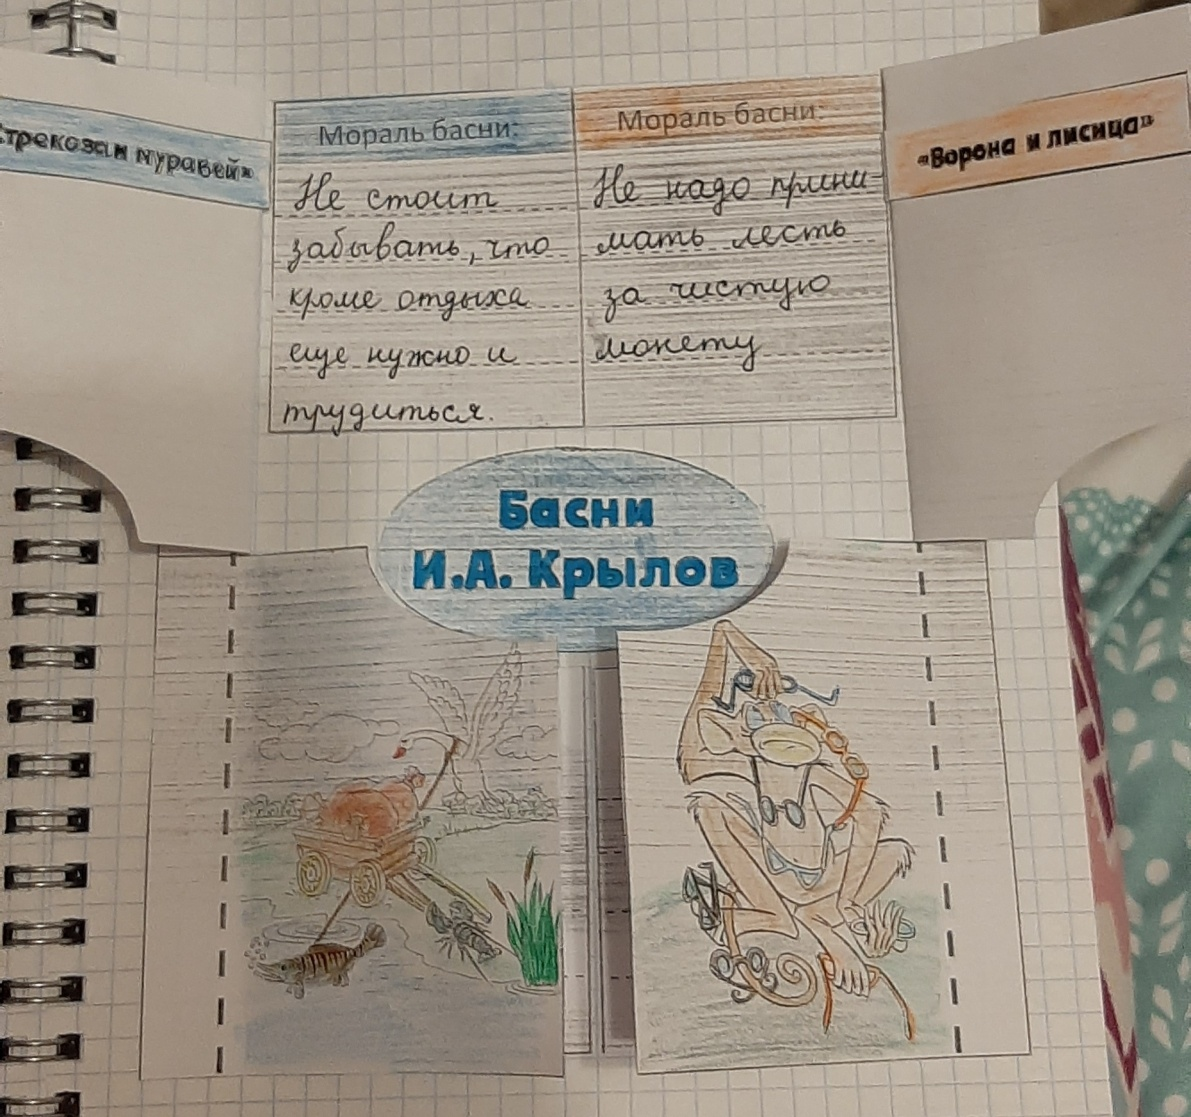 Стрекоза и муравей»
Мораль басни:
Не стоит
забывать, что
кроме отдыха
еще нужно и
трудиться.
Мораль басни:
Не надо прини-
мать лесть
за чистую
монету
«Ворона и лисица»
Басни
И.А. Крылов